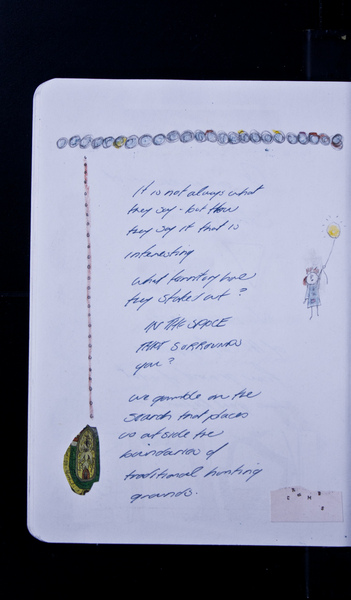 It is not always what
they say - but How
they say it that is
interesting
what territory have
they staked out?
IN THE SPACE
THAT SURROUNDS
you?
we gamble on the
search that places
us outside the
boundaries of
traditional hunting
grounds.